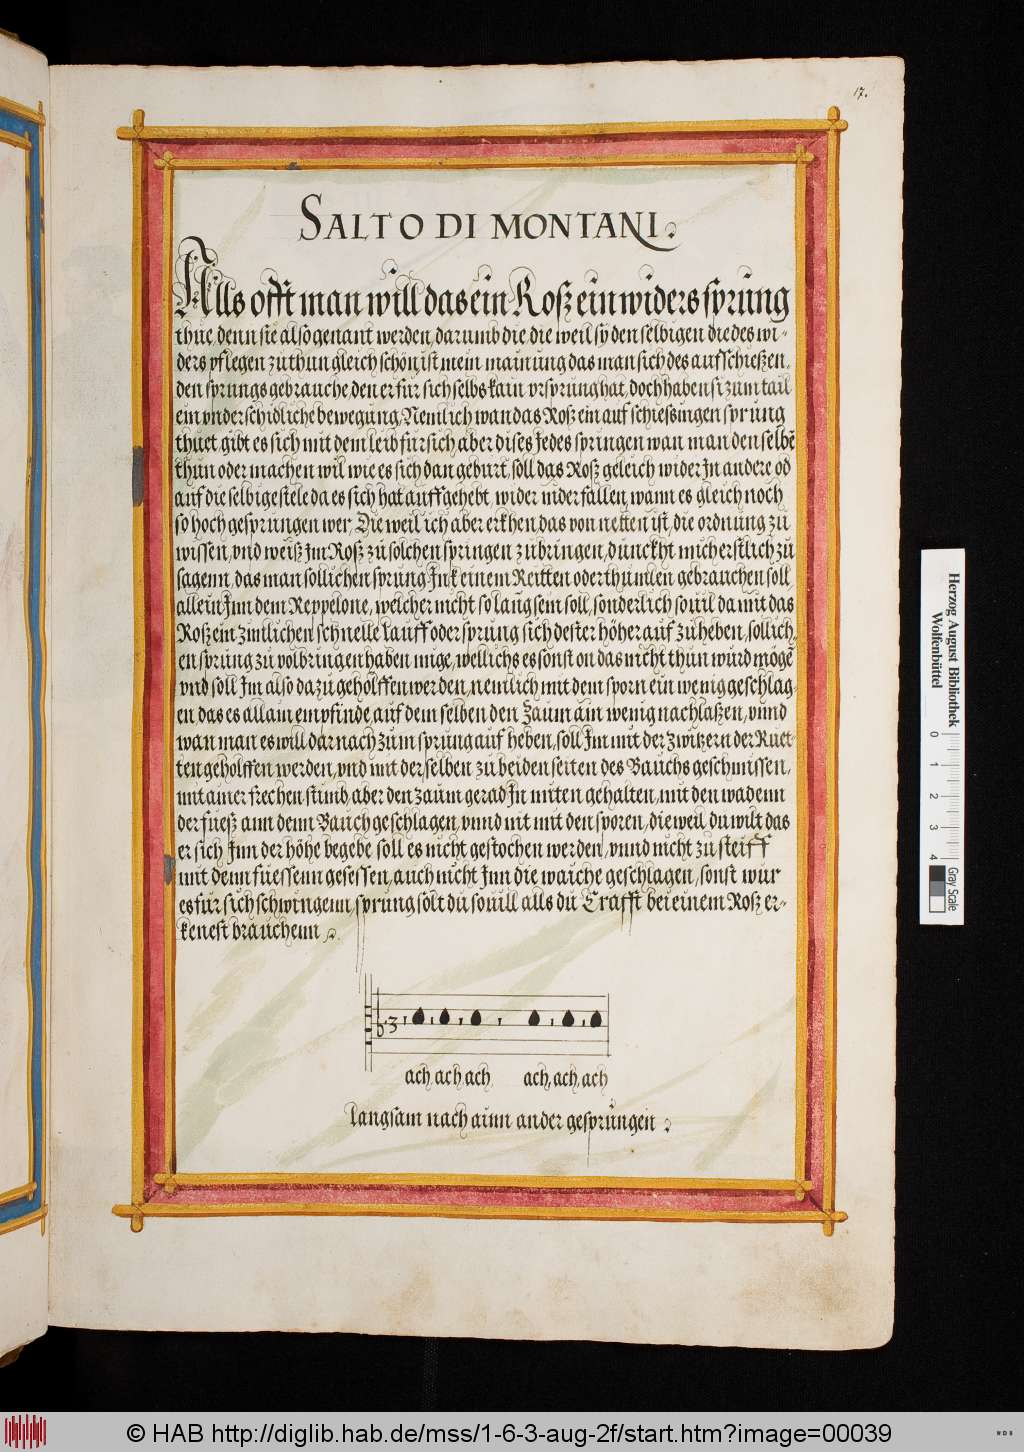 17.
SALTO DI MONTANI.
Alls offt man will das ein Rosz ein widers sprüng
thue, denn sie also genant werden, darumb die die weil sÿ den selbigen die des wi-
ders pflegen zü thun gleich schön, ist mein mainüng das man sich des aufschießen,
den sprungs gebrauche, den er für sich selbs kain vrsprüng hat, doch haben si züm tail
ein vnderschidliche bewegüng, Nemlich wan das Roß ein aufschiessüngen sprüng
thuet, gibt es sich mit dem leib für sich, aber dises Jedes springen wan man den selbē
thün oder machen wil wie es sich dan gebürt, soll das Roß geleich wider In andere od
auf die selbige stele da es sich hat auffgehebt, wider nider fallen, wann es gleich noch
so hoch gesprüngen wer, Die weil ich aber erkhen, das von netten ist, die ordnüng zü
wissen, vnd weiß Im Roß zü solchen springen zübringen, dünckht mich erstlich zü
sagenn, das man sollichen sprüng In keinem Reitten oder thümlen gebrauchen soll
allein Inn dem Reppelone, welcher nicht so langsem soll, sonderlich souil da mit das
Roß ein zimlichen schnelle lauff oder sprüng sich dester höher auf zü heben, sollich,
en sprüng zü volbringen haben müge, wellichs es sonst on das nicht thun würd mögē
vnd soll Im also da zü gehölffen werden, nemlich mit dem sporn ein wenig geschlag-
en das es allain empfinde, auf dem selben den Zaum ain wenig nachlaßen, vnnd
wan man es will darnach züm sprüng auf heben, soll Im mit der zwitzern der Rüet-
ten geholffen werden, vnd mit der selben zü beiden seiten des Bauchs geschmissen,
mit ainer frechen stimb, aber den Zaum gerad In miten gehalten, mit den wadenn
der füeß ann denn Bauch geschlagen, vnnd nit mit den sporen, die weil du wilt das
er sich Inn der höhe begebe soll es nicht gestochen werden, vnnd nicht zü steiff
mit denn füessenn gesessen, auch nicht Inn die waiche geschlagen, sonst wür
es für sich schwingenn, sprüng solt dü souill alls dü Crafft bei einem Roß er-
kenest braüchenn
3
ach, ach, ach, ach, ach, ach
langsam nach ainn ander gesprüngen
Herzog August Bibliothek
Wolfenbüttel
0 1 2 3 4
Gray Scale
© HAB http://diglib.hab.de/mss/1-6-3-aug-2f/start.htm?image=00039